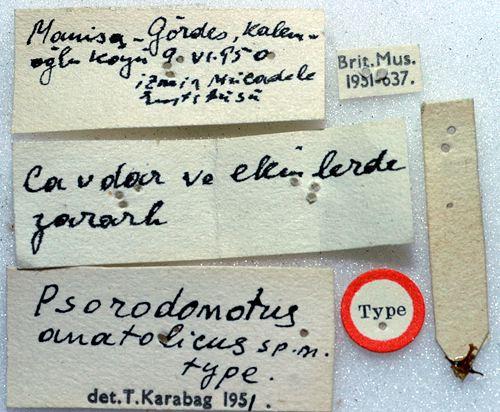 Manisa-Gördes, Kalem-
oğlu Köyü 9.VI.950
izmir Mücadele
Enstitüsü
Brit. Mus.
1951-637.
Cavdar ve ekinlerde
zararlı
Psorodonotus
anatolicus sp.n.
type.
det. T. Karabag 1951.
Type